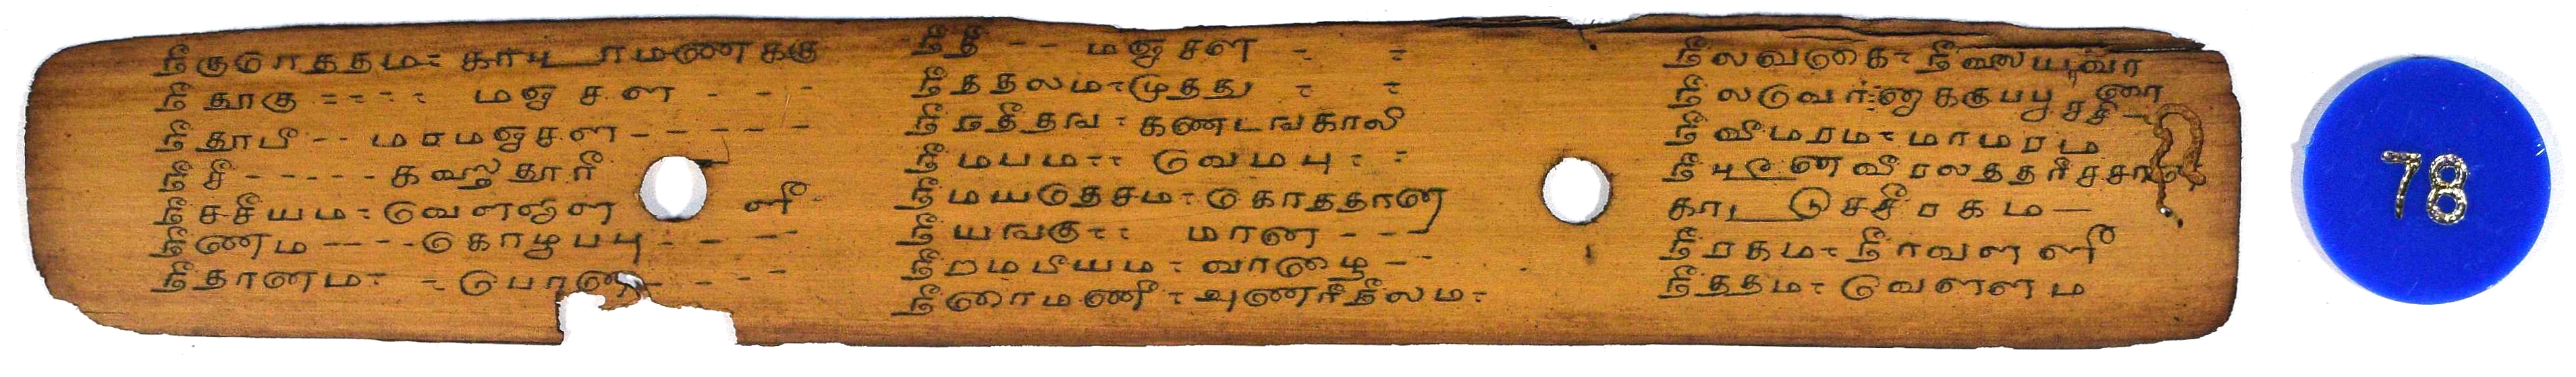 நீருமாததம= காடடாமணககு
நீதூகு ==== மஞசள - - -
நீதூபி -- மரமஞசள - - - - -
நீசி - - - - - கஷதூரி
நீசசியம= வெளளெளளி
நீணம ---- கொழுபபு - - -
நீதானம= - பொன - - -
நீதி -- மஞசள - =
நீததலம=முதது = =
நீததிதங= கணடஙகாலி
நீமபம== வேமபு = =
நீமயதேசம= கொததான
நீயஙகு== மான ---
நீறமபியம= வாழை --
நீராமணி= அணரிநீலம=
நீலவகை= நீலையவர
நீலடுவர்னுககுபபு
நீவிமரம= மாமரம
காடடுசசீரகம —
நீரகம= நீரவளளி
நீததம= வெளளம
78